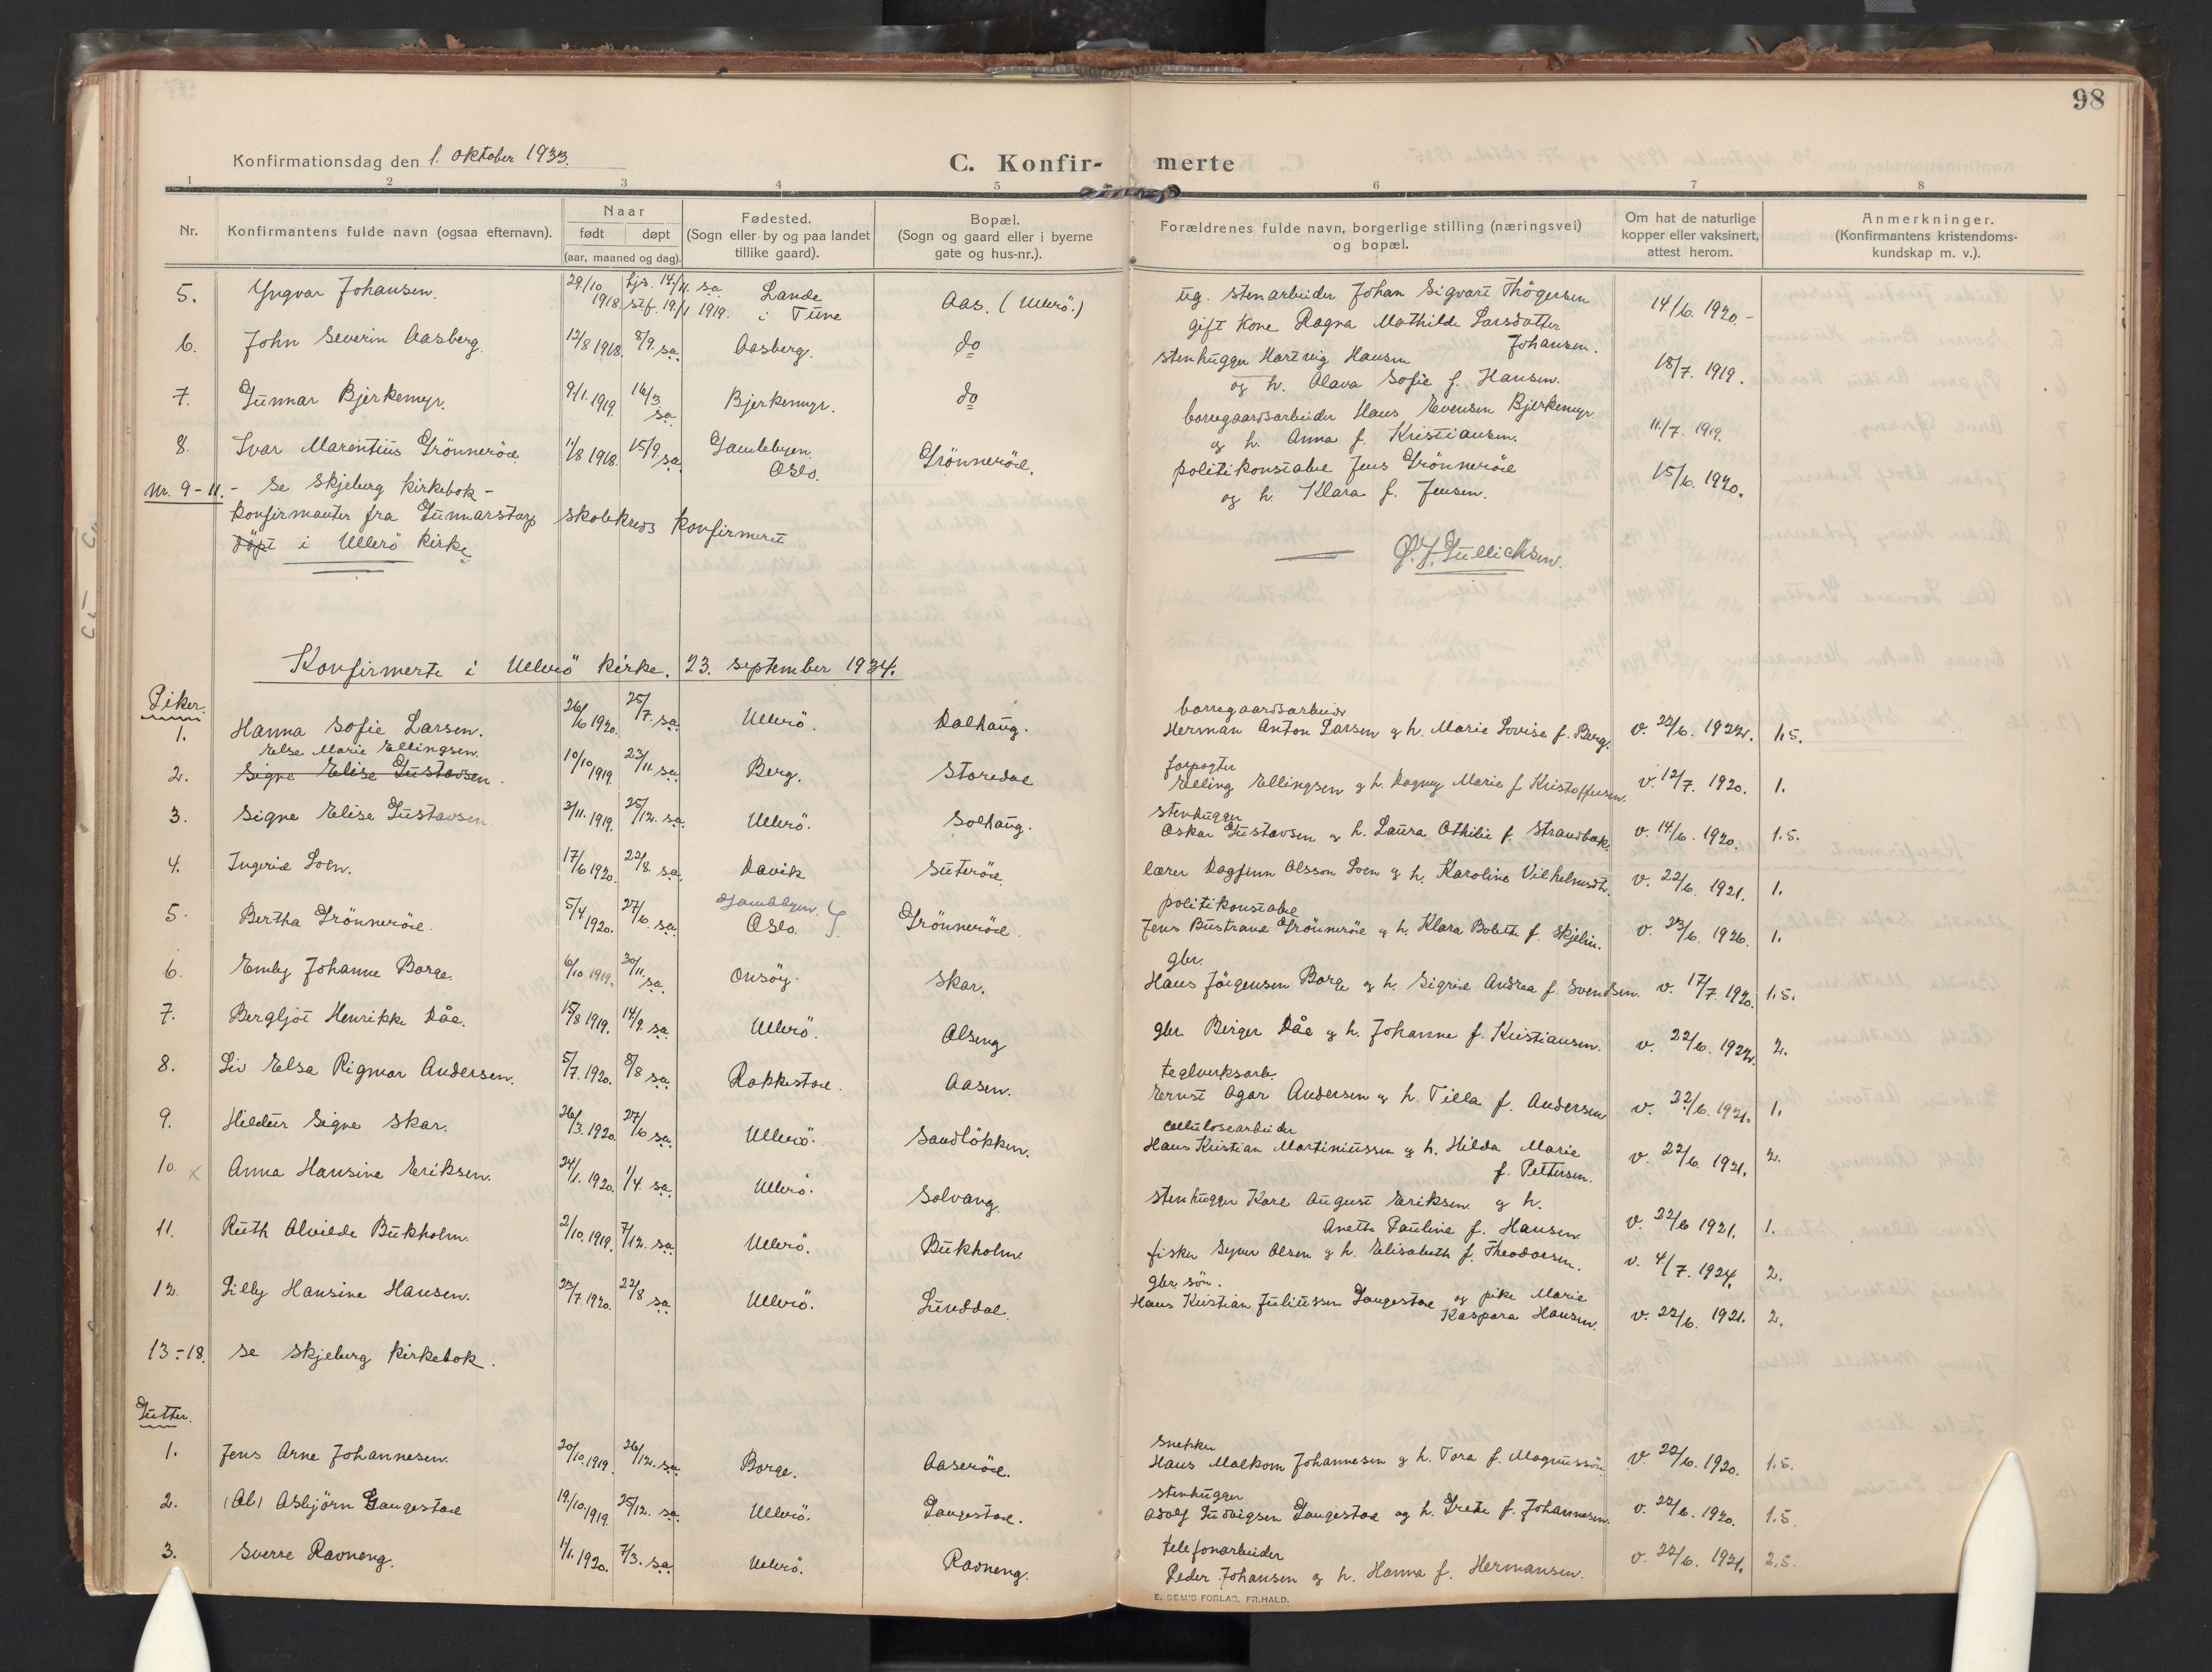 98
Konfirmationsdag den 1. oktober 1933.
C. Konfir- merte
1 2 3 4 5 6 7 8
Nr.
Konfirmantens fulde navn (ogsaa efternavn).
Naar
født døpt
(aar, maaned og dag).
Fødested.
(Sogn eller by og paa landet
tillike gaard).
Bopæl.
(Sogn og gaard eller i byerne
gate og hus-nr.).
Forældrenes fulde navn, borgerlige stilling (næringsvei)
og bopæl.
Om hat de naturlige
kopper eller vaksinert,
attest herom.
Anmerkninger.
(Konfirmantens kristendoms-
kundskap m. v.).
5. Yngvar Johansen. 29/10 1918. hjs. 14/11. sa. stf. 19/1 1919. Lande i Tune Aas. (Ullerö.) ug. stenarbeider Johan Sigvart Thögersen 14/6. 1920. -
gift kone Ragna Mathilde Larsdatter
Johansen.
6. John Severin Aasberg. 12/8 1918. 8/9. sa. Aasberg. do stenhugger Hartvig Hansen 18/7. 1919.
og h. Olava Sofie f. Hansen.
7. Gunnar Bjerkemyr. 9/1. 1919. 16/3 sa. Bjerkemyr. do borregaardsarbeider Hans Evensen Bjerkemyr 11/7. 1919.
og h. Anna f. Kristiansen.
8. Ivar Marentius Grönneröd 11/8 1918. 15/9. sa. Gamlebyen. Oslo. Grönneröd. politikonstabel Jens Grönneröd 15/6. 1920.
og h. Klara f. Jensen.
Nr. 9-11. - Se Skjeberg kirkebok -
konfirmanter fra Gunnarstorp skolekreds konfirmert
döpt i Ullerö kirke
Ø. J. Gullichsen.
Konfirmerte i Ullerö kirke. 23. september 1934.
Piker.
borregaardsarbeider
1. Hanna Sofie Larsen. 26/6 1920. 25/7. sa. Ullerö. Dalhaug. Herman Anton Larsen og h. Marie Lovise f. Berg. v. 22/6. 1922. 1,5.
Else Marie Ellingsen.
forpagter
2. Signe Elise Gustavsen. 10/10 1919. 23/11. sa. Berg. Storedal Elling Ellingsen og h. Dagny Marie f. Kristoffersen. v. 12/7. 1920. 1.
stenhugger
3. Signe Elise Gustavsen 2/11. 1919. 25/12. sa. Ullerö. Solhaug. Oskar Gustavsen og h. Laura Othilie f. Strandbak. v. 14/6. 1920. 1.5.
4. Ingerid Loen. 17/6 1920. 22/8. sa. Davik Suteröd. lærer Dagfinn Olsson Loen og h. Karoline Vilhelmsdt. v. 22/6. 1921. 1.
politikonstabel
5. Bertha Grönneröd. 5/4 1920. 27/6. sa. Gamlebyen. Oslo. Grönneröd. Jens Bustrane Grönneröd og h. Klara Bolette f. Skjelin. v. 23/6. 1926. 1.
gbr.
6. Emly Johanne Borge. 6/10 1919. 30/11. sa. Onsöy. Skar. Hans Jörgensen Borge og h. Sigrid Andrea f. Svendsen. v. 17/7. 1920. 1.5.
7. Bergljot Henrikke Dåe. 15/8 1919. 14/9. sa. Ullerö. Olseng gbr. Birger Dåe og h. Johanne f. Kristiansen. v. 22/6. 1922. 2.
teglverksarb.
8. Liv Elsa Rigmor Andersen. 5/7. 1920. 8/8 sa. Rakkestad. Aasen. Ernst Agar Andersen og h. Tilla f. Andersen v. 22/6. 1921. 1.
cellulosearbeider
9. Hildur Signe Skar. 26/3. 1920. 27/6 sa. Ullerö. Sandlökken. Hans Kristian Martiniussen og h. Hilda Marie v. 22/6. 1921. 2.
f. Pettersen.
10. x Anna Hansine Eriksen. 24/1. 1920. 1/4. sa. Ullerö. Solvang. stenhugger Karl August Eriksen og h.
Anette Pauline f. Hansen. v. 22/6 1921. 1.
11. Ruth Alvilde Bukholm. 2/10. 1919. 7/12. sa. Ullerö. Bukholm. fisker Syver Olsen og h. Elisabeth f. Theodorsen. v. 4/7. 1924. 2.
gbr. sön.
12. Lilly Hansine Hansen. 23/7. 1920. 22/8 sa. Ullerö. Lunddal. Hans Kristian Juliussen Langestad og pike Marie
Kaspara Hansen. v. 22/6. 1921. 2.
13-18. se Skjeberg kirkebok.
Gutter.
snekker
1. Jens Arne Johannesen. 20/10. 1919. 26/12. sa. Borge. Aaseröd. Hans Malkom Johannesen og h. Tora f. Magnussön. v. 22/6. 1920. 1.5.
stenhugger
2. (Al) Asbjörn Langestad 19/10. 1919. 25/12. sa. Ullerö. Langestad. Adolf Ludvigsen Langestad og h. Grete f. Johannesen. v. 22/6. 1920. 1.5.
telefonarbeider
3. Sverre Ravneng. 1/1. 1920. 7/3. sa. Ullerö. Ravneng. Peder Johansen og h. Hanna f. Hermansen. v. 22/6. 1921. 2.5.
E. SEM'S FORLAG. FR.HALD.